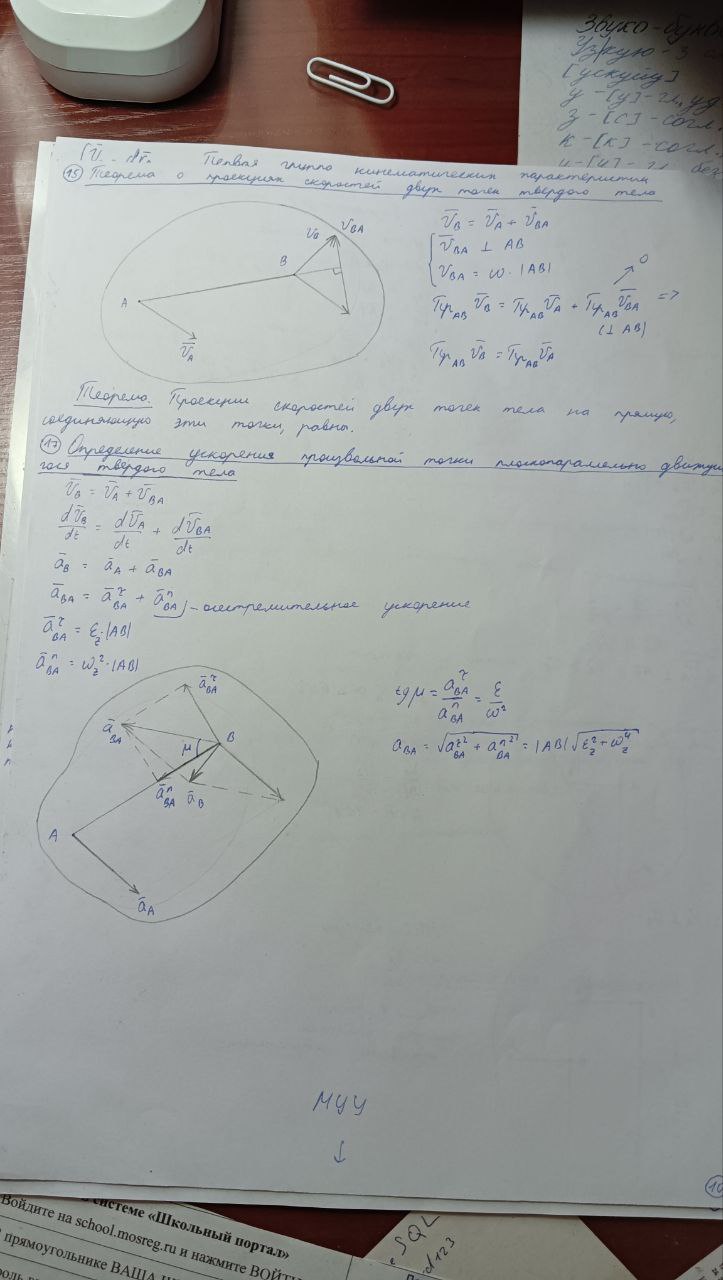 Звуко-букв
Узкую - 3
[ускуйу]
у - [у] - гл, уд
з - [с] - согл.
к - [к] - согл.
Первая группа кинематических характеристик
(15) Теорема о проекциях скоростей двух точек твердого тела
v̄_B = v̄_A + v̄_BA
v̄_BA ⊥ AB
v_BA = ω · |AB|
Пр_AB v̄_B = Пр_AB v̄_A + Пр_AB v̄_BA =>
0
(⊥ AB)
Пр_AB v̄_B = Пр_AB v̄_A
v_B
v_BA
B
A
v̄_A
Теорема. Проекции скоростей двух точек тела на прямую,
соединяющую эти точки, равны.
(17) Определение ускорения произвольной точки плоскопаралельно движущ
гося твердого тела
v̄_B = v̄_A + v̄_BA
dv̄_B/dt = dv̄_A/dt + dv̄_BA/dt
ā_B = ā_A + ā_BA
ā_BA = ā^τ_BA + ā^n_BA - осестремительное ускорение
ā^τ_BA = ε_z · |AB|
ā^n_BA = ω_z² · |AB|
tg μ = a^τ_BA / a^n_BA = ε / ω²
a_BA = √(a^τ²_BA + a^n²_BA) = |AB| √(ε_z² + ω_z⁴)
ā^τ_BA
ā_BA
μ
B
ā^n_BA
ā_B
A
ā_A
МУУ
↓
системе «Школьный портал»
Войдите на school.mosreg.ru и нажмите ВОЙТ
прямоугольнике ВАША
SQL
d123